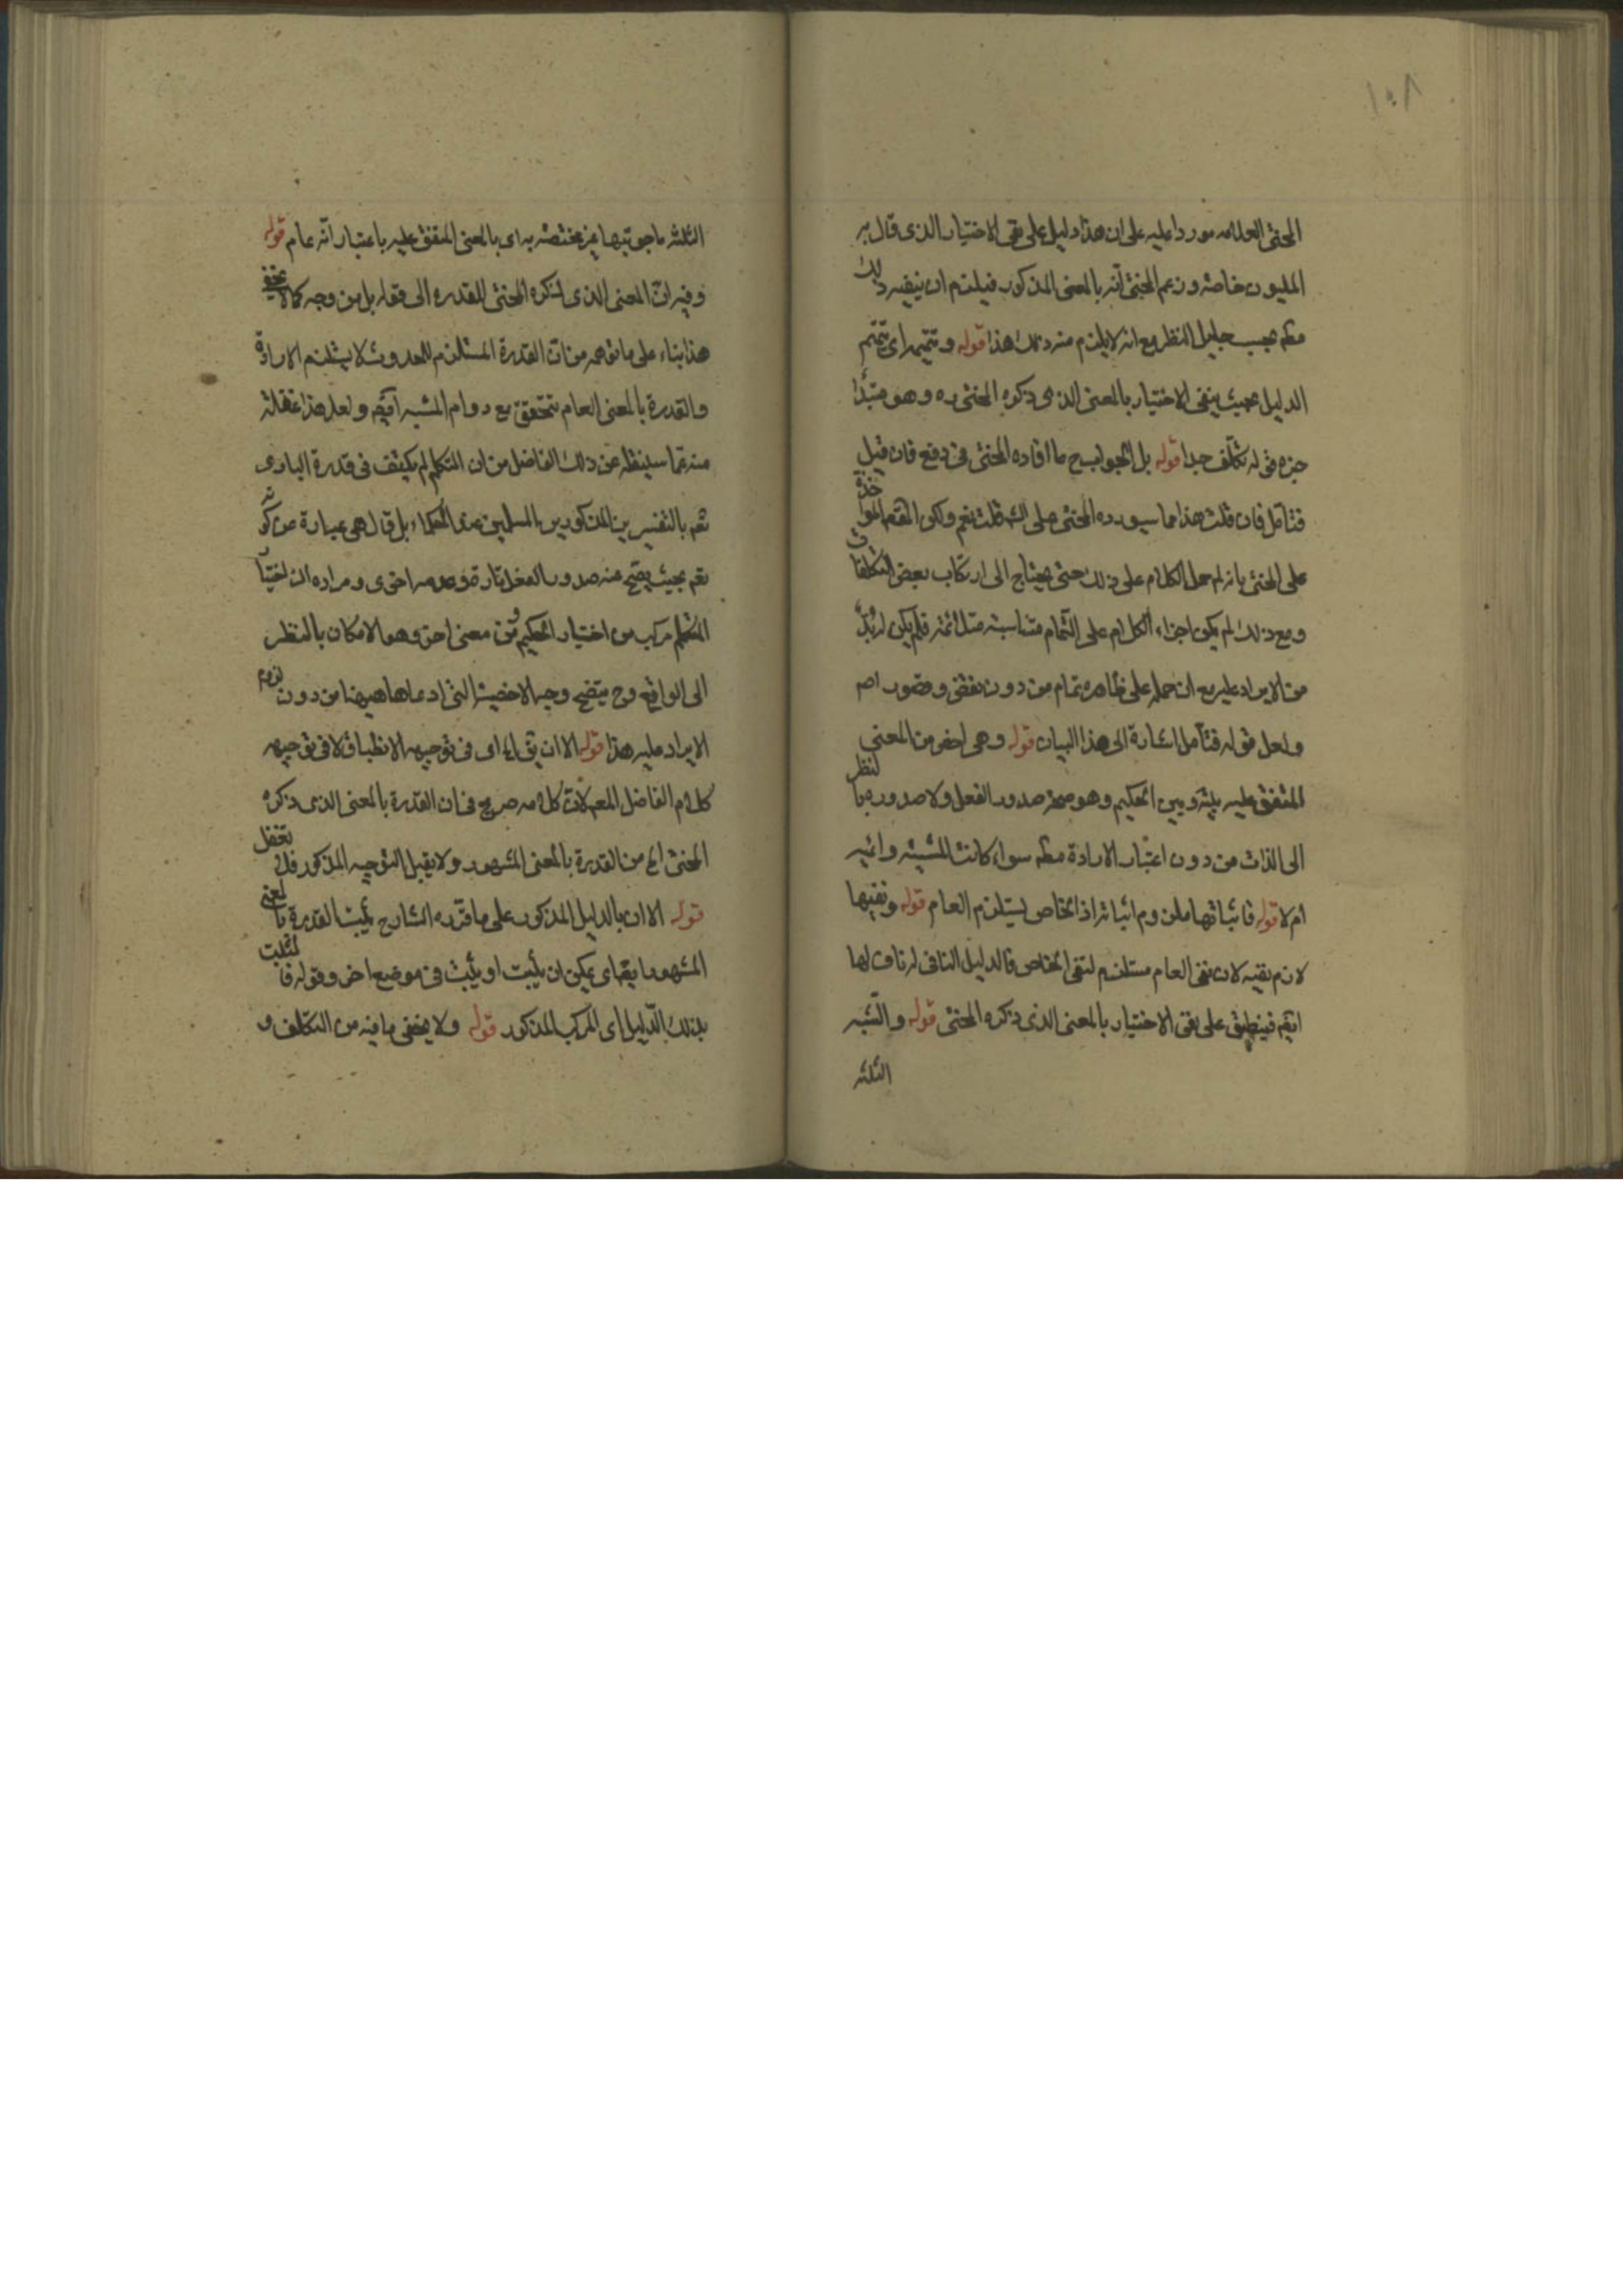 ١٠٨
المحشى العلامه موردا عليه على ان هذا دليل على نفى الاختيار الذى قال به
المليون خاصة وزعم المحشى انه بالمعنى المذكور فيلزم ان ينفيه ذلك
مط بحسب جليل النظر مع انه لا يلزم منه ذلك هذا قوله وتتميمه اى تتميم
الدليل بحيث ينفى الاختيار بالمعنى الذى ذكره المحشى ره وهو مبتدأ
خبره قوله تكلف جدا قوله بل الجواب ح ما افاده المحشى فى دفع فان قيل
فتأمل فان قلت هذا مما سيورده المحشى على الش قلت نعم ولكن المقص المواخذة
على المحشى بانه لم حمل الكلام على ذلك حتى يحتاج الى ارتكاب بعض التكلفات
ومع ذلك لم يكن اجزاء الكلام على التمام متناسبة متلائمة فلم يكن له بد
من الايراد عليه مع ان حمله على ظاهره تمام من دون نقض وقصور اصم
ولعل قوله فتأمل اشارة الى هذا البيان قوله وهى اخص من المعنى
المتفق عليه بينه وبين الحكيم وهو صحة صدور الفعل ولا صدوره بالنظر
الى الذات من دون اعتبار الارادة مط سواء كانت المشية دائمية
ام لا قوله فاثباتها ملزوم اثباته اذ الخاص يستلزم العام قوله ونفيها
لازم نفيه لان نفى العام مستلزم لنفى الخاص فالدليل النافى له ناف لها
ايضم فينطبق على نفى الاختيار بالمعنى الذى ذكره المحشى قوله والشبه
الثلثه
الثلثه باجوبتها غير مختصة به اى بالمعنى المتفق عليه باعتبار انه عام قوله
وفيه ان المعنى الذى ذكره المحشى للقدرة الى قوله بل من وجه كما لا يخفى
هذا بناء على ما توهمه من ان القدرة المستلزم للحدوث لا يستلزم الارادة
والقدرة بالمعنى العام يتحقق مع دوام المشية ايضم ولعل هذا غفلة
منه عما سينقله عن ذلك الفاضل من ان المتكلم لم يكتف فى قدرة البارى
تعم بالتفسيرين المذكورين المسلمين عند الحكماء بل قال هى عبارة عن كونه
تعم بحيث يصح عنه صدور الفعل تارة وعدمه اخرى ومراده ان اختيار
المتكلم مركب من اختيار الحكيم ومن معنى اخر وهو الامكان بالنظر
الى الواقع وح يتضح وجه الاخصية التى ادعاها هيهنا من دون لزوم
الايراد عليه هذا قوله الا ان يق الخ اى فى توجيه الانطباق لا فى توجيه
كلام الفاضل المعم لان كلامه صريح فى ان القدرة بالمعنى الذى ذكره
المحشى اعم من القدرة بالمعنى المشهور ولا يقبل التوجيه المذكور فلا تغفل
قوله الا ان بالدليل المذكور على ما قرره الشارح يثبت القدرة بالمعنى
المشهور ايضم اى يمكن ان يثبت او يثبت فى موضع اخر وقوله فالمثبت
بذلك الدليل اى المركب المذكور قوله ولا يخفى ما فيه من التكلف و